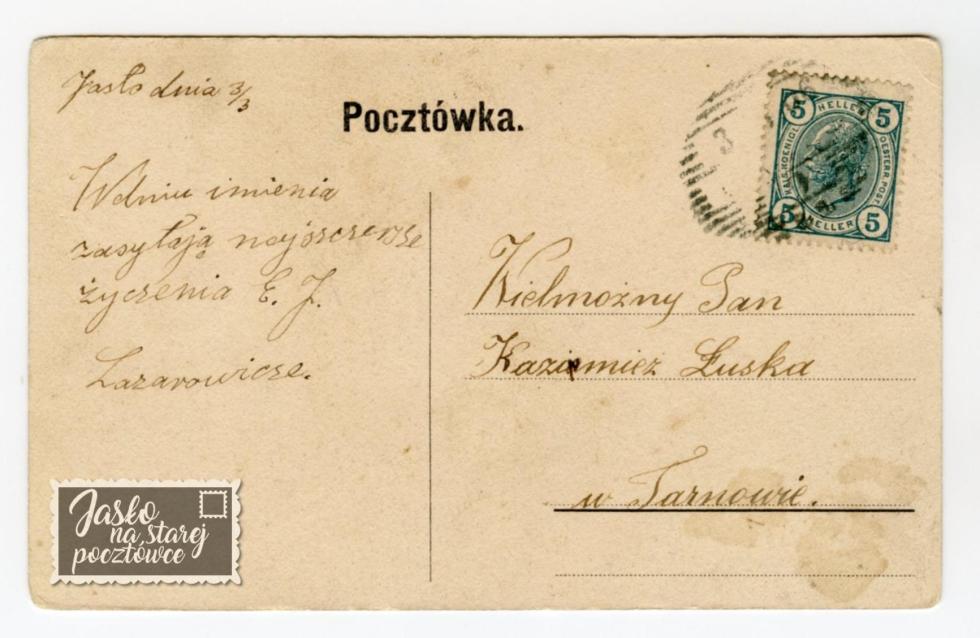 Jasło dnia 3/3
Pocztówka.
W dniu imienia
zasyłają najszczersze
życzenia E. J.
Lazarowicze.
5 HELLER 5
KAIS. KOENIGL. OESTERR. POST
5 HELLER 5
3
Wielmożny Pan
Kazimierz Łuska
w Tarnowie.
Jasło
na starej
pocztówce